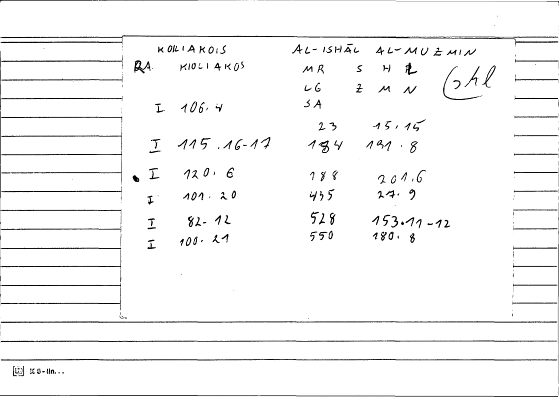 KOILIAKOIS AL-ISHĀL AL-MUZMIN
KIOLIAKOS MR S H L
LG Z M N
I 106.4 SA
23 15.15
I 115.16-17 184 191.8
I 120.6 188 201.6
I 101.20 435 27.9
I 82.12 528 153.11-12
I 100.21 550 180.8